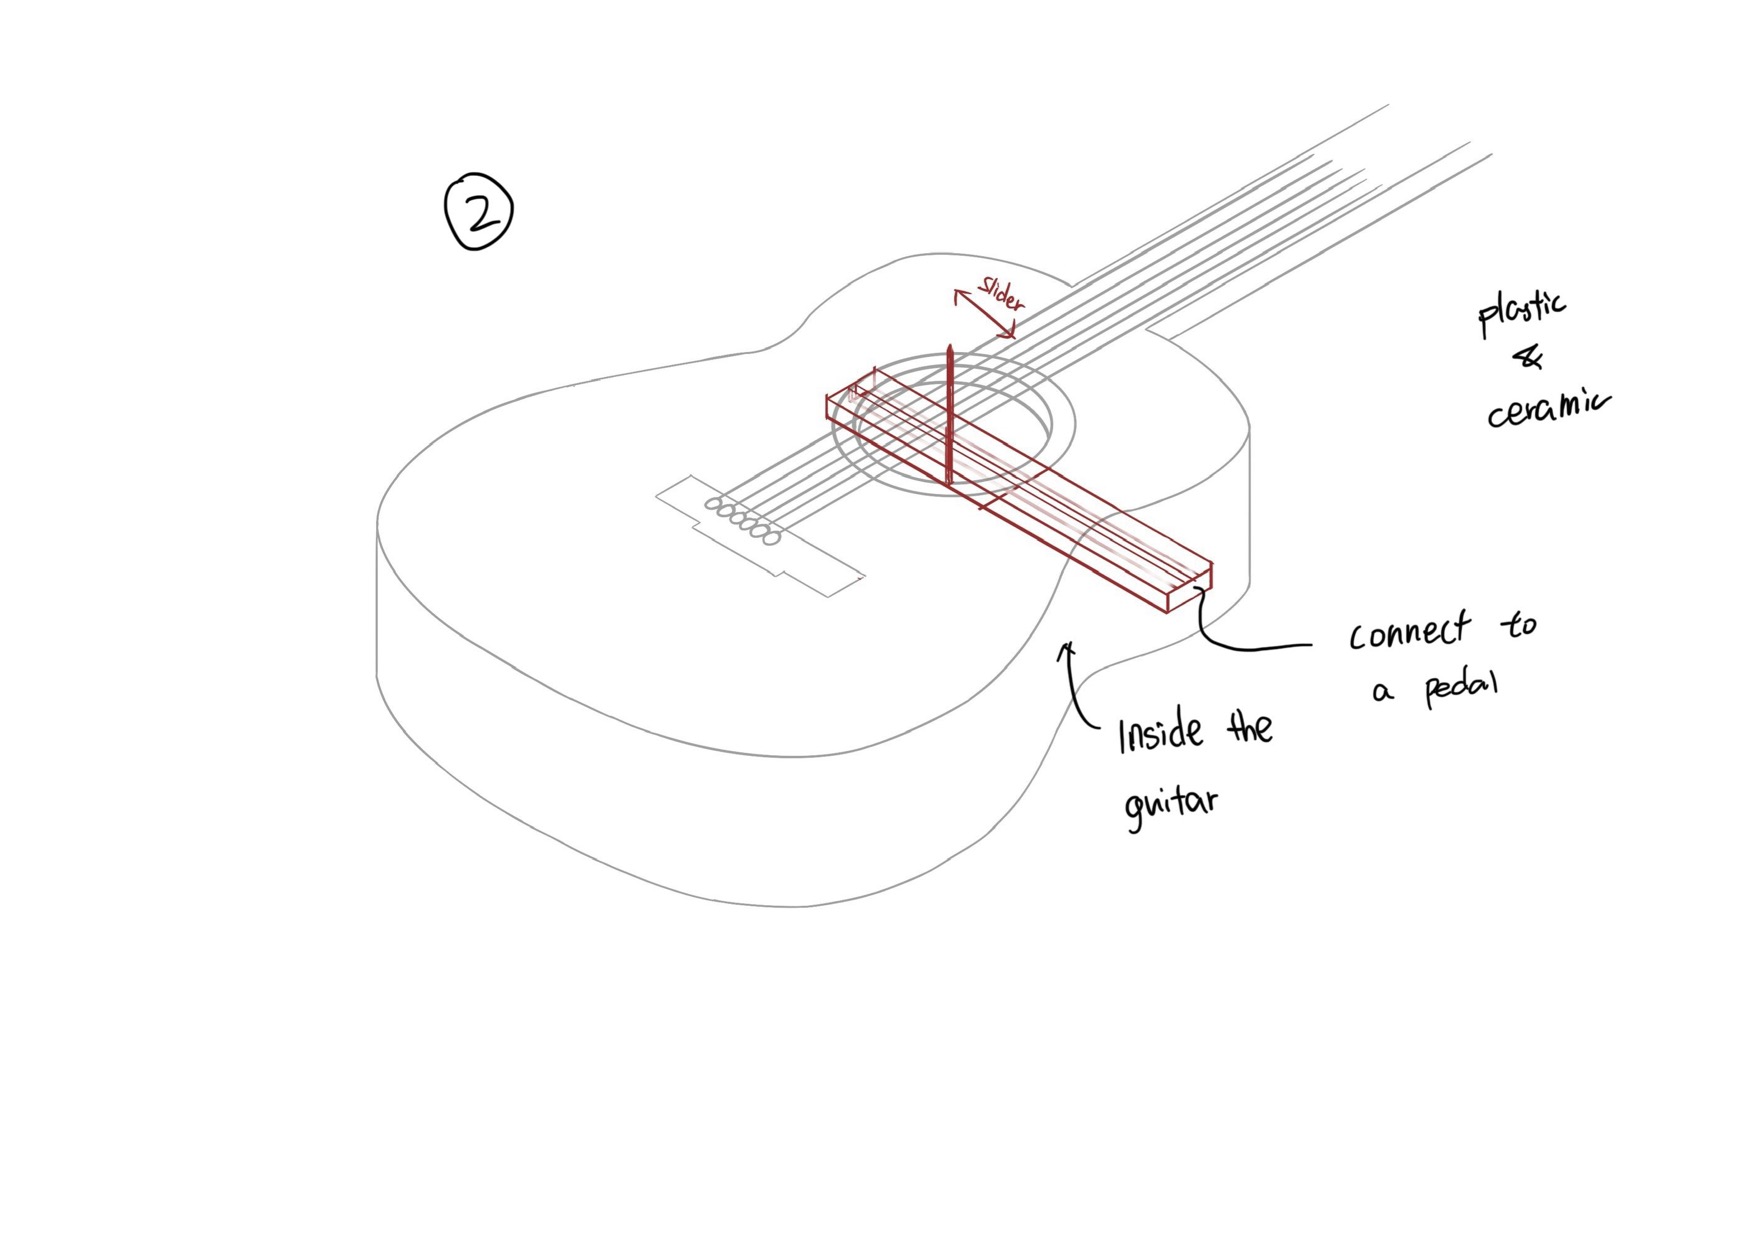 2
slider
plastic
&
ceramic
connect to
a pedal
Inside the
guitar